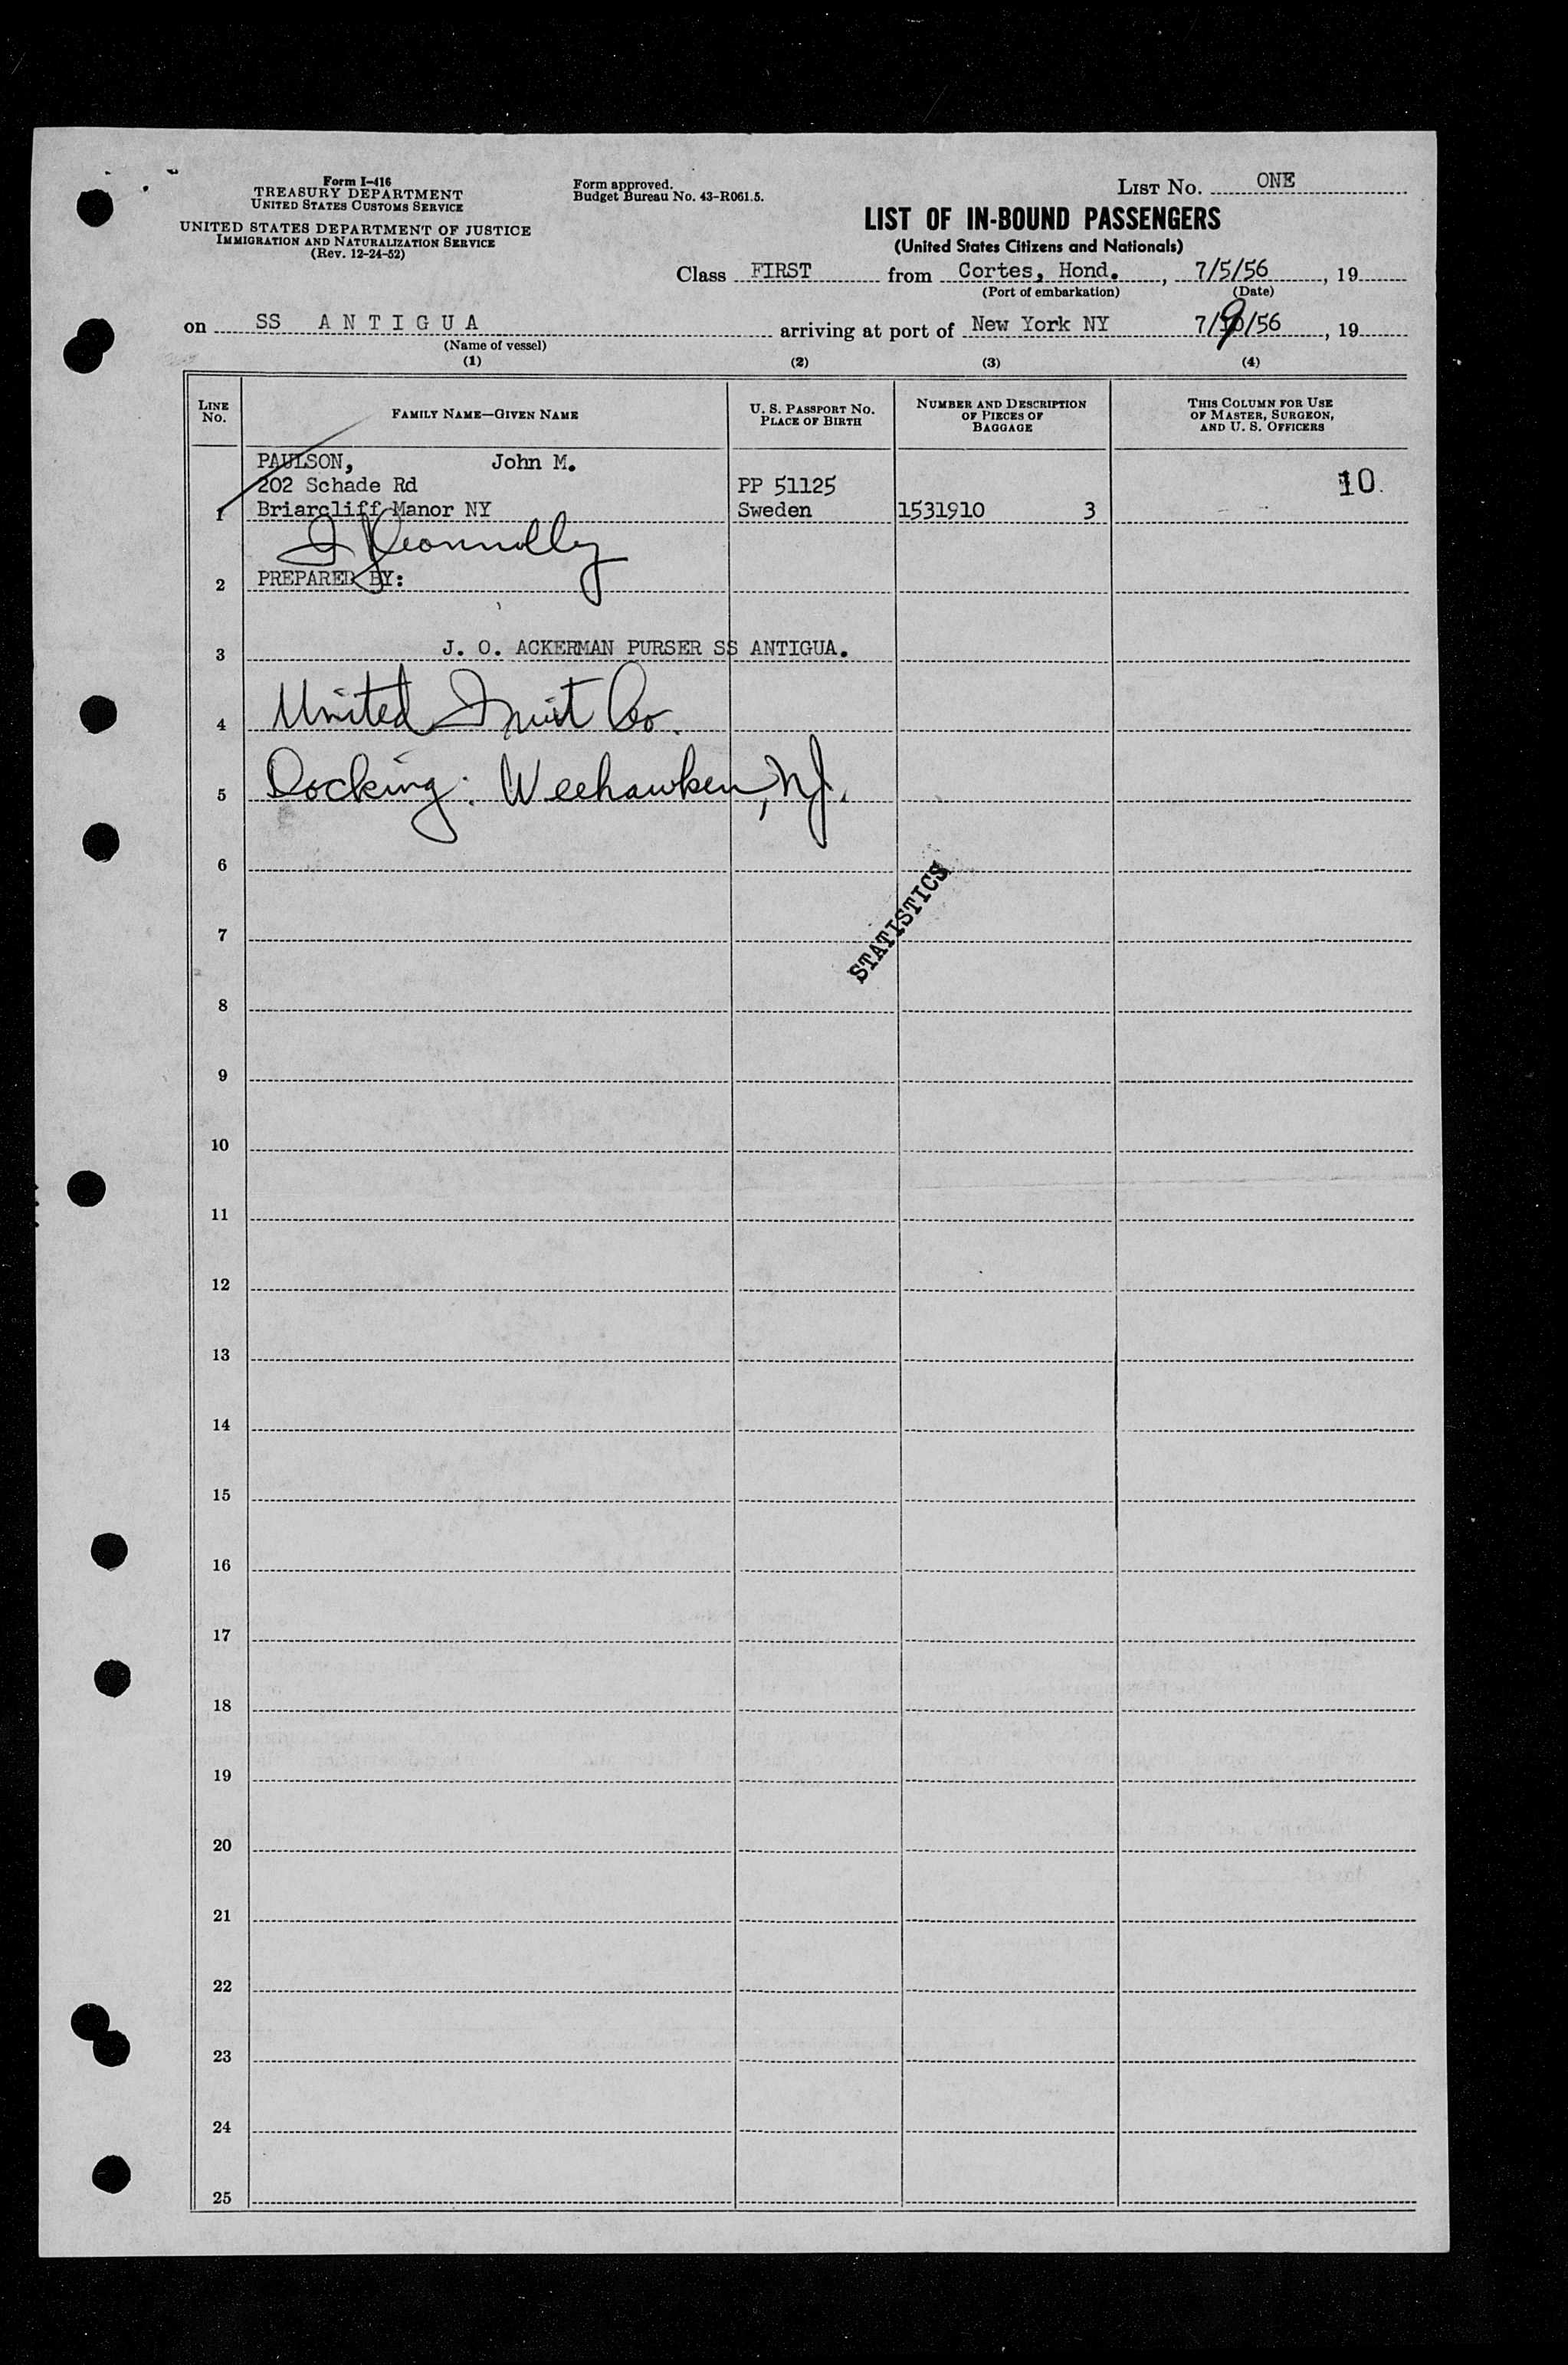 Form I-416
TREASURY DEPARTMENT
UNITED STATES CUSTOMS SERVICE
UNITED STATES DEPARTMENT OF JUSTICE
IMMIGRATION AND NATURALIZATION SERVICE
(Rev. 12-24-52)
Form approved.
Budget Bureau No. 43-R061.5.
LIST NO. ONE
LIST OF IN-BOUND PASSENGERS
(United States Citizens and Nationals)
Class FIRST from Cortes, Hond., 7/5/56, 19
(Port of embarkation) (Date)
on SS ANTIGUA arriving at port of New York NY 7/9/56, 19
(Name of vessel)
(1) (2) (3) (4)
LINE NO.
FAMILY NAME—GIVEN NAME
U. S. PASSPORT NO.
PLACE OF BIRTH
NUMBER AND DESCRIPTION
OF PIECES OF
BAGGAGE
THIS COLUMN FOR USE
OF MASTER, SURGEON,
AND U. S. OFFICERS
PAULSON, John M.
202 Schade Rd PP 51125 10
1 Briarcliff Manor NY Sweden 1531910 3
Connolly
2 PREPARED BY:
3 J. O. ACKERMAN PURSER SS ANTIGUA.
4 United Fruit Co.
5 Docking: Weehawken, NJ.
6
STATISTICS
7
8
9
10
11
12
13
14
15
16
17
18
19
20
21
22
23
24
25